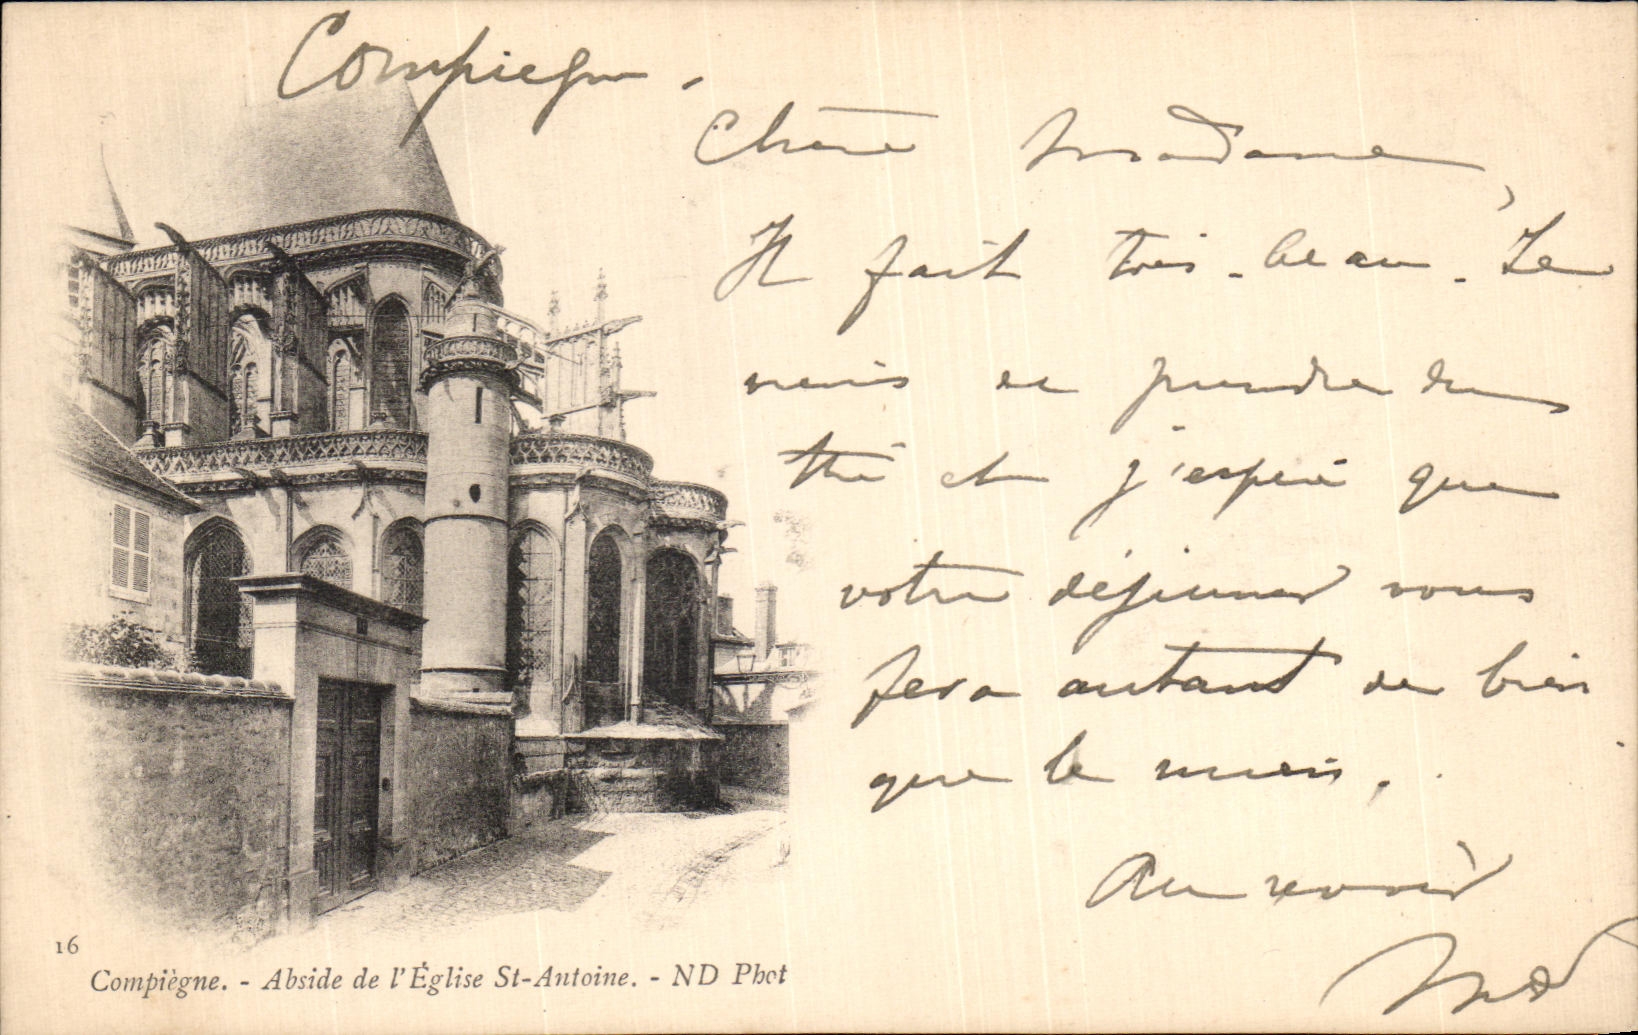 Compiègne.
Chère Madame,
Il fait très-beau. Je
viens de prendre du
thé et j'espère que
votre déjeuner vous
fera autant de bien
que le mien.
Au revoir
16
Compiègne. - Abside de l'Église St-Antoine. - ND Phot